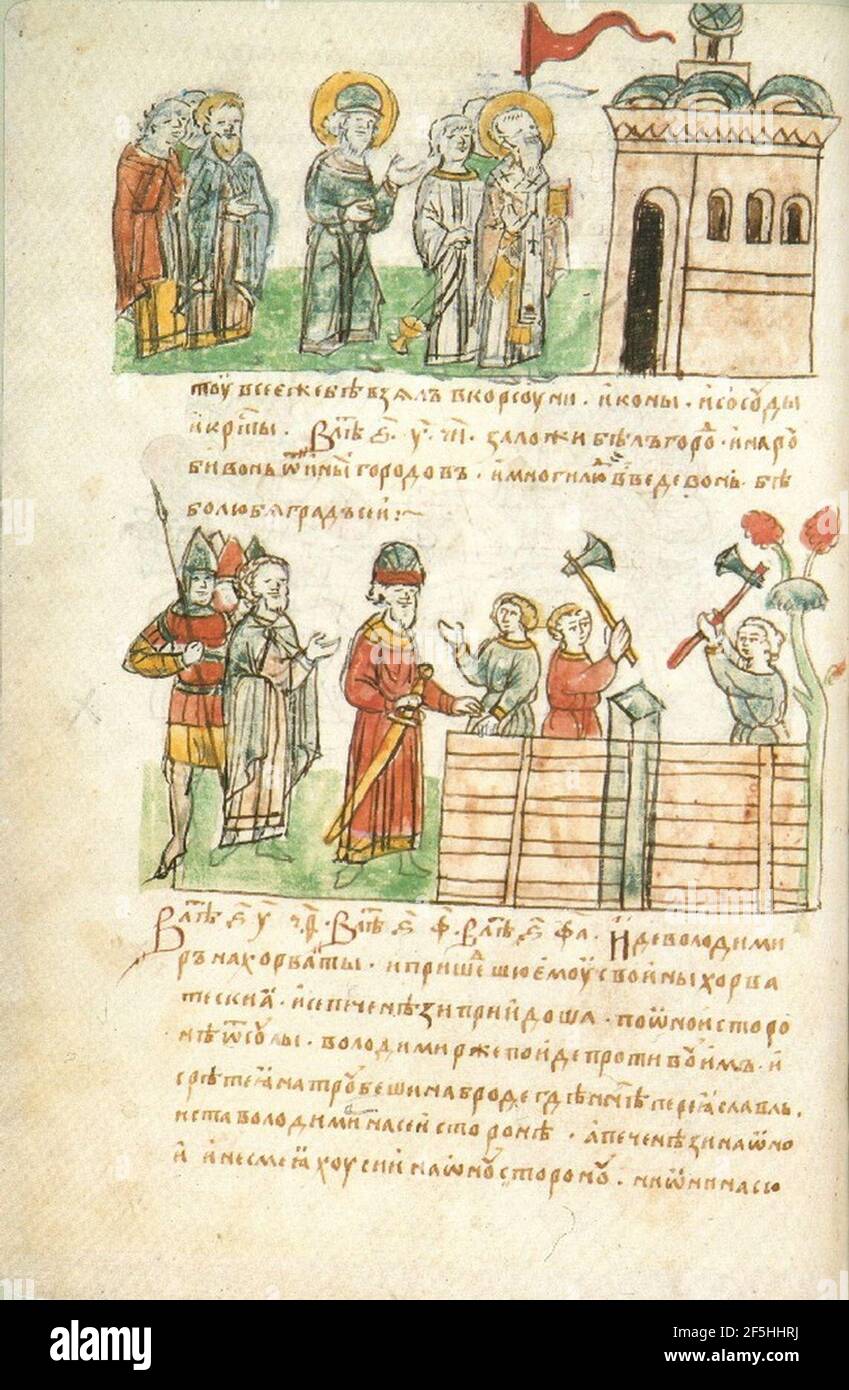 тоу всеежебѣвзѧлъ вкорсоуни . иконы . исосоуды
икрⷭ҇ты . Влѣⷮ ҂ѕ҃ . у҃ . ч҃ѳ . заложи бѣлъгороⷣ . инаро
бивонь ѿинⷯыгородовъ . имногилюⷣ введевонь . бѣ
болюбѧградъсеи :~
Влѣⷮ ҂ѕ҃ у҃ ч҃ѳ . Влѣⷮ ҂ѕ҃ ф҃ . Влѣⷮ ҂ѕ҃ ф҃а . Идеволодими
ръна хорваты . ипришеⷣшюемоу свои ны хорва
тескиа . исепеченѣзи приидоша . поѡнои сторо
нѣ ѿсоулы . володимиржепоиде противоуимъ . и
срѣтеꙗ натроубешинаброде гдѣннⷩ҇ѣ переꙗславль .
иста володими насеи сторонѣ . апеченѣзи наѡно
и инесмеꙗхоу сии наѡноусторону . ниѡнинасю
alamy
Image ID: 2F5HHRJ
www.alamy.com